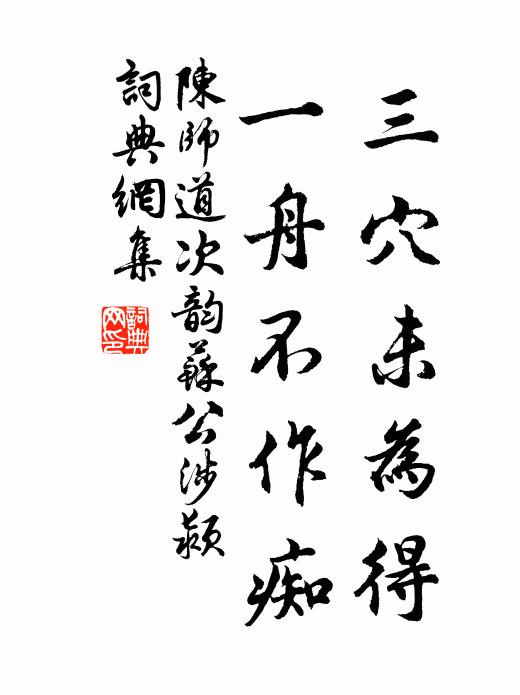 三穴未為得
一舟不作痴
陳師道次韵蘇公涉颍
詞典網集
詞典网印